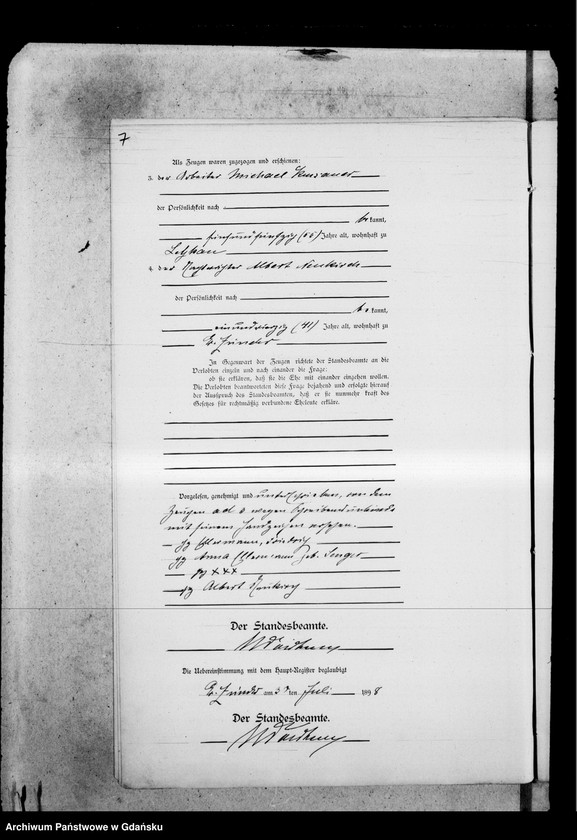 7
Als Zeugen waren zugezogen und erschienen:
3. der Arbeiter Michael
der Persönlichkeit nach
be kannt,
fünfundfünfzig (55) Jahre alt, wohnhaft zu
Letzkau
4. der Albert Neukirch
der Persönlichkeit nach
be kannt,
einundvierzig (41) Jahre alt, wohnhaft zu
Gr. Zünder
In Gegenwart der Zeugen richtete der Standesbeamte an die
Verlobten einzeln und nach einander die Frage:
ob sie erklären, daß sie die Ehe mit einander eingehen wollen.
Die Verlobten beantworteten diese Frage bejahend und erfolgte hierauf
der Ausspruch des Standesbeamten, daß er sie nunmehr kraft des
Gesetzes für rechtmäßig verbundene Eheleute erkläre.
Vorgelesen, genehmigt und unterschrieben, von dem
Zeugen ad 3 wegen Schreibensunkunde
mit seinem Handzeichen versehen.
gez Ellermann, Friedrich
gez Anna Ellermann geb. Senger
gez +++
gez Albert Neukirch
Der Standesbeamte.
Die Uebereinstimmung mit dem Haupt-Register beglaubigt
Gr. Zünder am 3 ten Juli 1898
Der Standesbeamte.
Archiwum Państwowe w Gdańsku